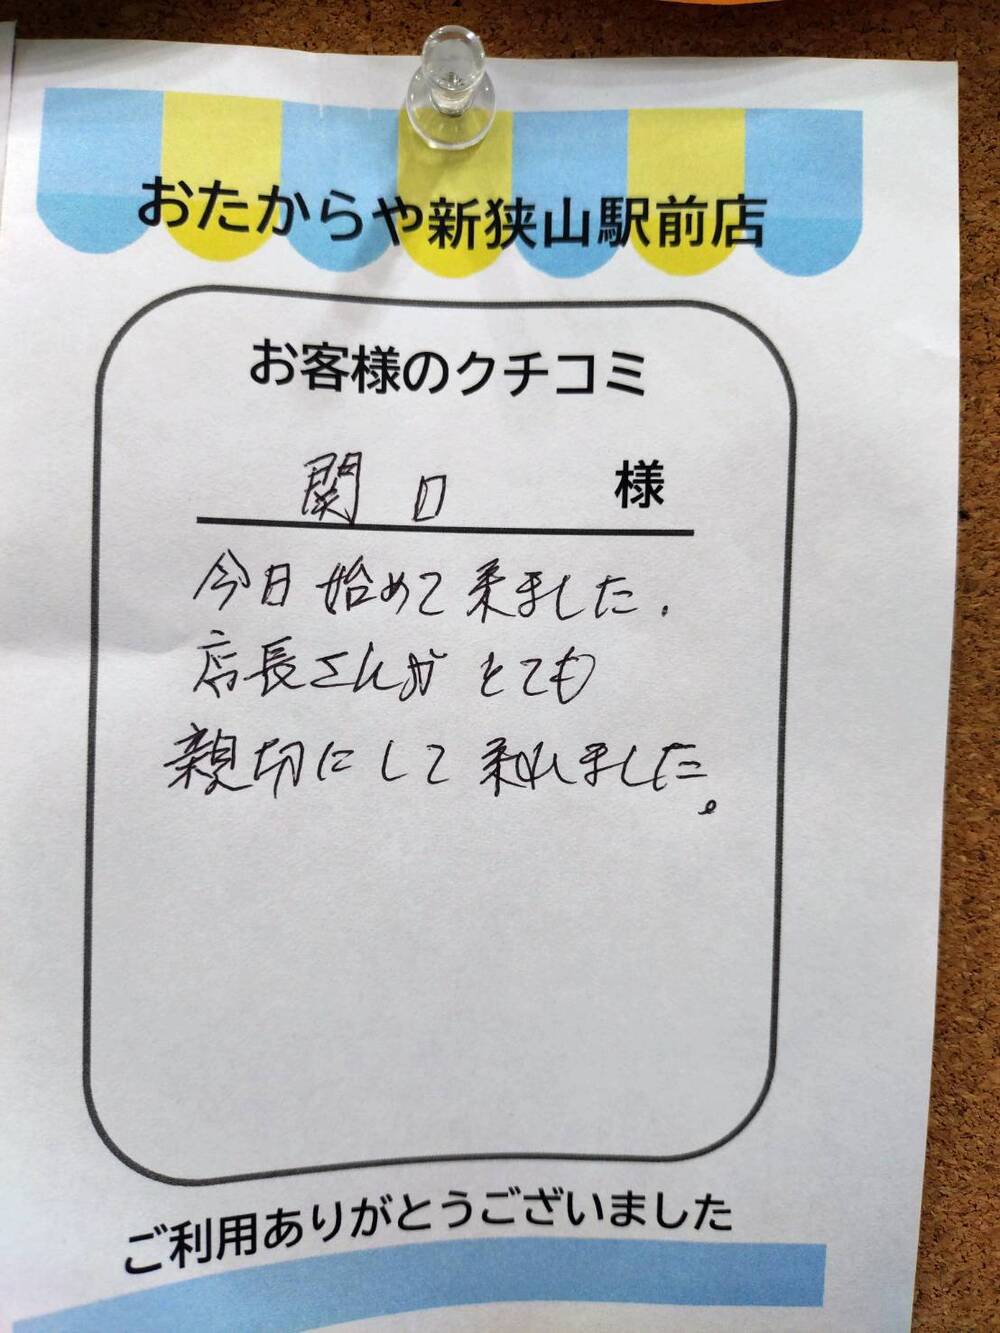 おたからや新狭山駅前店
お客様のクチコミ
関口 様
今日始めて来ました.
店長さんがとても
親切にして来れました。
ご利用ありがとうございました